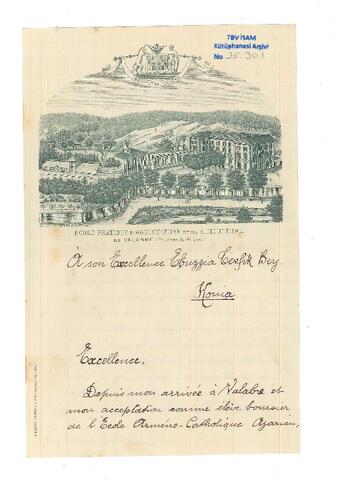 TDV İSAM
Kütüphanesi Arşivi
No
ÉCOLE PRATIQUE D'AGRICULTURE ET DE
DE VALABRE
À son Excellence Ebuzzia Tevfik Bey.
Konia
Excellence,
Depuis mon arrivée à Valabre et
mon acceptation comme élève boursier
de l'École Arméno-Catholique Azarian,